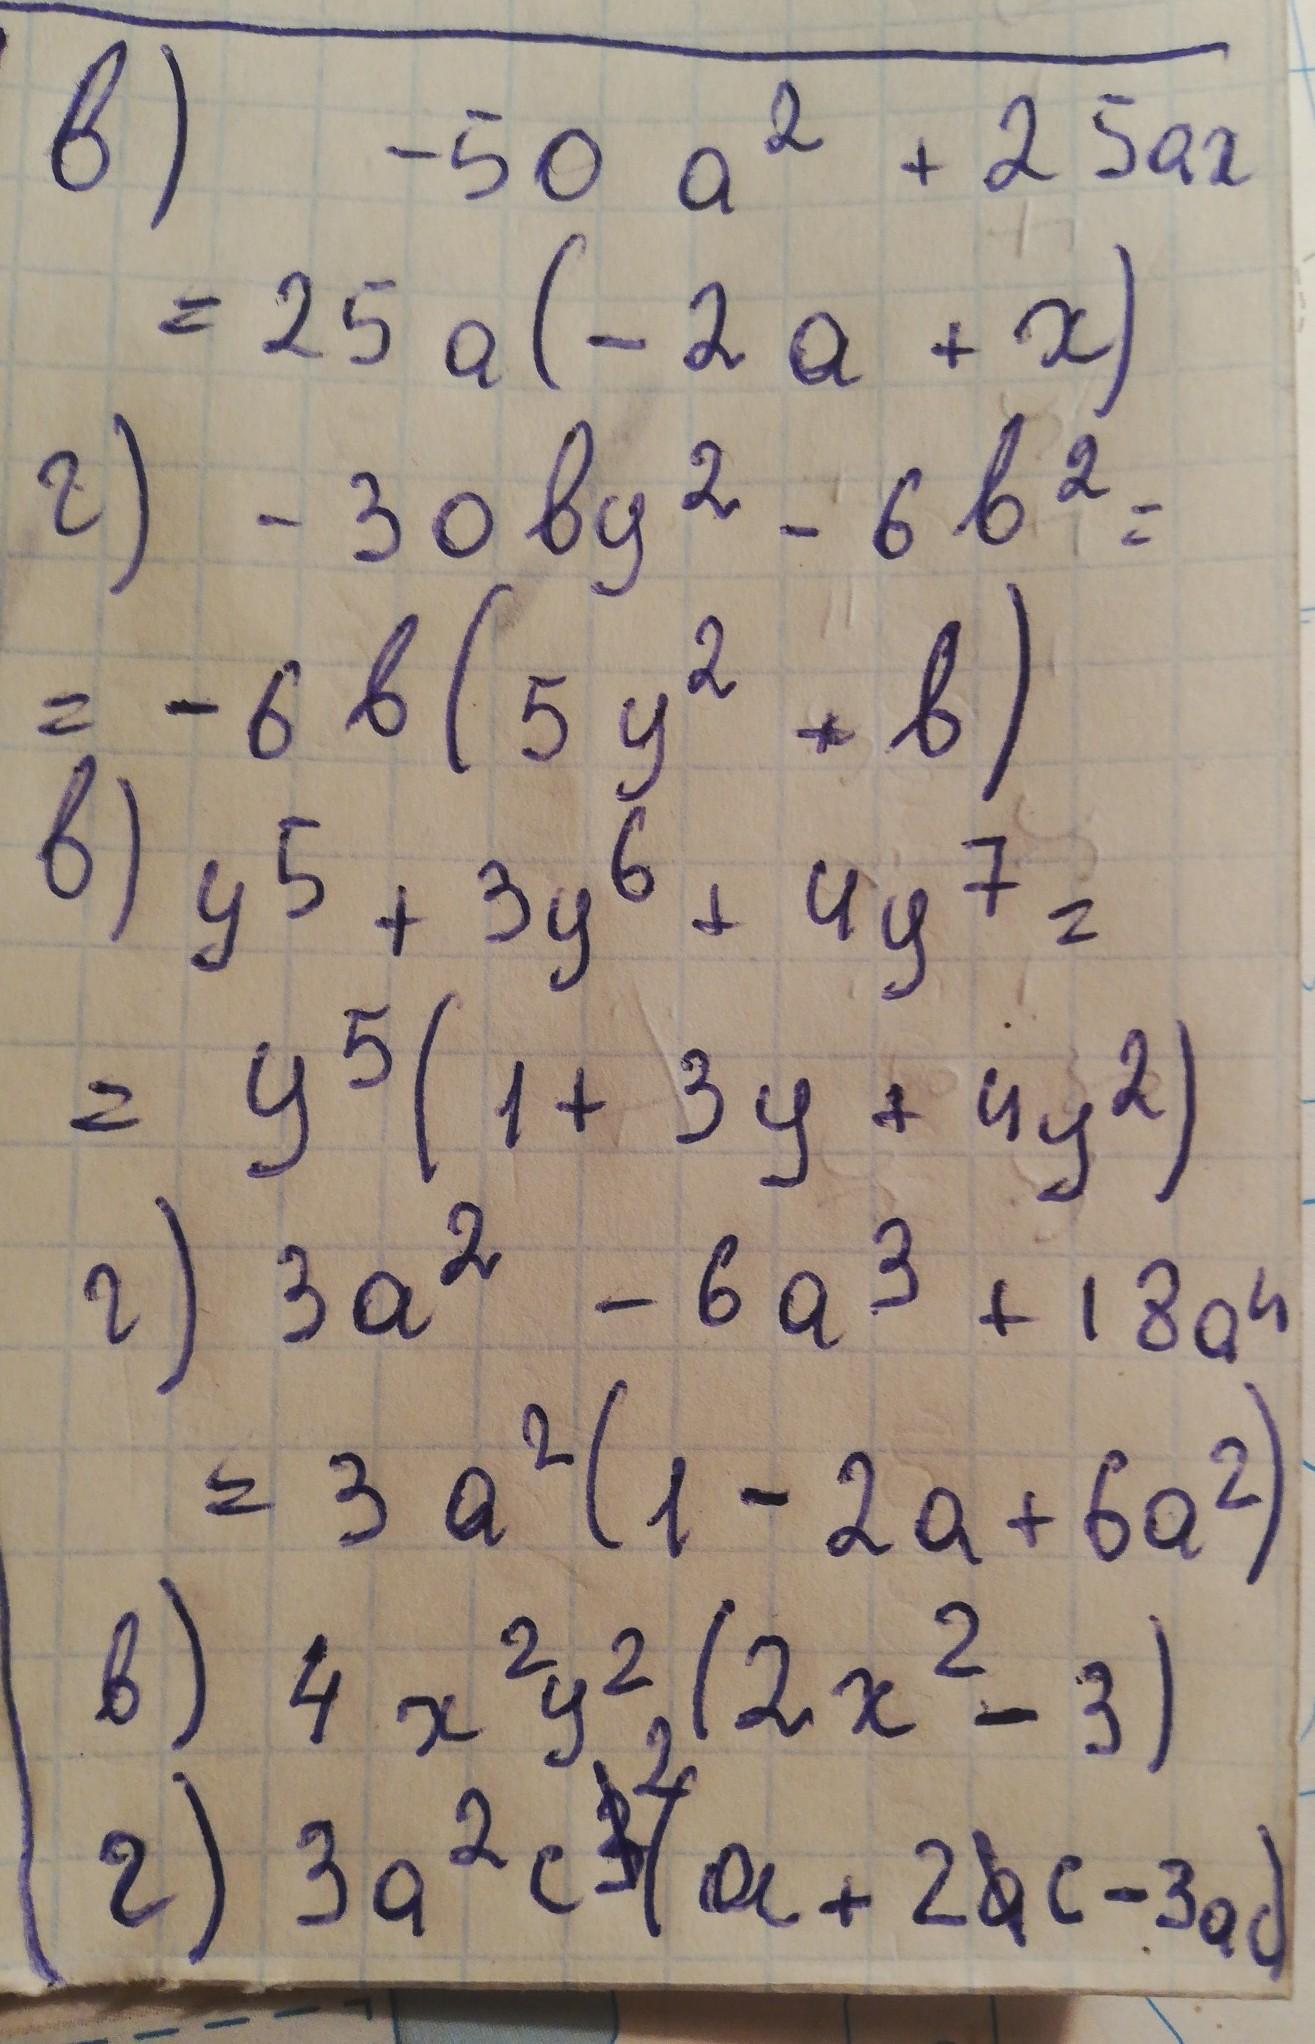 в) -50 a² + 25ax
= 25a(-2a + x)
г) -30by² - 6b² =
= -6b(5y² + b)
в) y⁵ + 3y⁶ + 4y⁷ =
= y⁵(1 + 3y + 4y²)
г) 3a² - 6a³ + 18a⁴
= 3a²(1 - 2a + 6a²)
в) 4x²y²(2x² - 3)
г) 3a²c²(